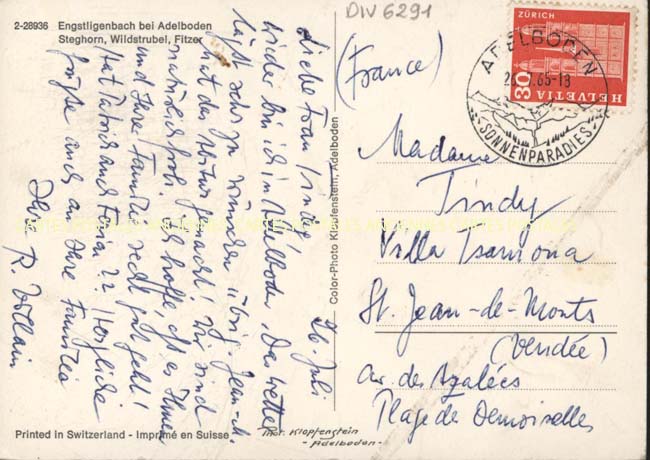 2-28936 Engstligenbach bei Adelboden
Steghorn, Wildstrubel, Fitzer
DIV 6291
26. Juli
Liebe Frau Tindy!
Wieder bin ich in Adelboden. Das Wetter
läßt sehr zu wünschen übrig. Jean-M.
hat das Abitur gemacht! Wir sind
natürlich froh. Ich hoffe, daß es Ihnen
und Ihrer Familie recht gut geht!
Hat Patrick auch Ferien?? Herzliche
Grüße auch an Ihre Familie
Ihre R.
Color-Photo Klopfenstein, Adelboden
ZÜRICH
30
HELVETIA
ADELBODEN
65-18
SONNENPARADIES
(France)
Madame
Tindy
Villa Tsamona
St. Jean-de-Monts
(Vendée)
Av. des Azalées
Plage de Demoiselles
Printed in Switzerland - Imprimé en Suisse
Phot. Klopfenstein
- Adelboden -